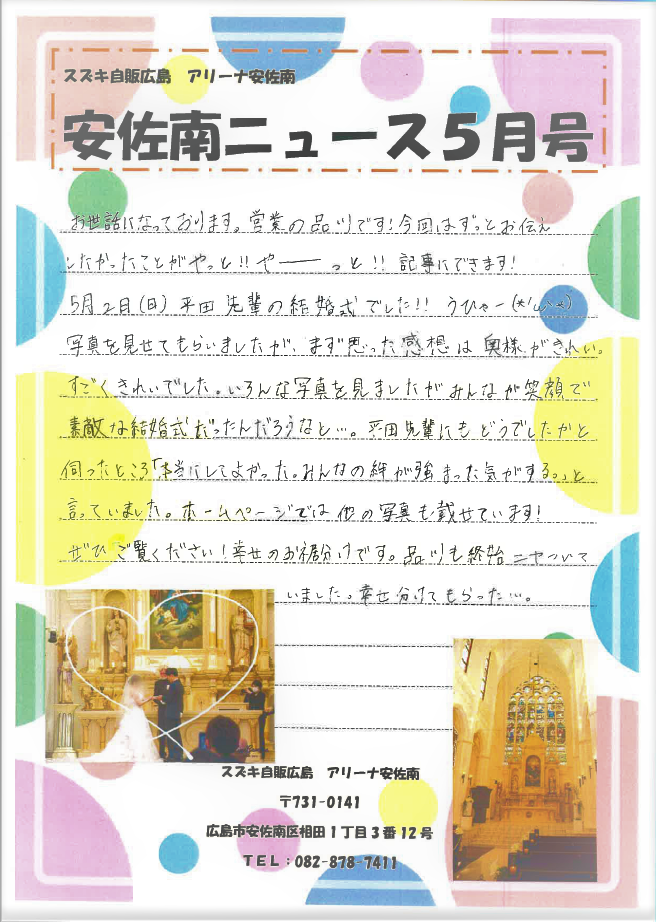 スズキ自販広島　アリーナ安佐南
安佐南ニュース５月号
お世話になっております。営業の品川です！今回はずっとお伝え
したかったことがやっと!!やーーーっと!!記事にできます！
5月2日(日)平田先輩の結婚式でした!!うひゃー
写真を見せてもらいましたが、まず思った感想は奥様がきれい。
すごくきれいでした。いろんな写真を見ましたがみんなが笑顔で
素敵な結婚式だったんだろうなと…。平田先輩にもどうでしたかと
伺ったところ「本当にしてよかった。みんなの絆が強まった気がする。」と
言っていました。ホームページでは他の写真も載せています！
ぜひご覧ください！幸せのお裾分けです。品川も終始ニヤついて
いました。幸せ分けてもらった…。
スズキ自販広島　アリーナ安佐南
〒731-0141
広島市安佐南区相田１丁目３番12号
ＴＥＬ：082-878-7411